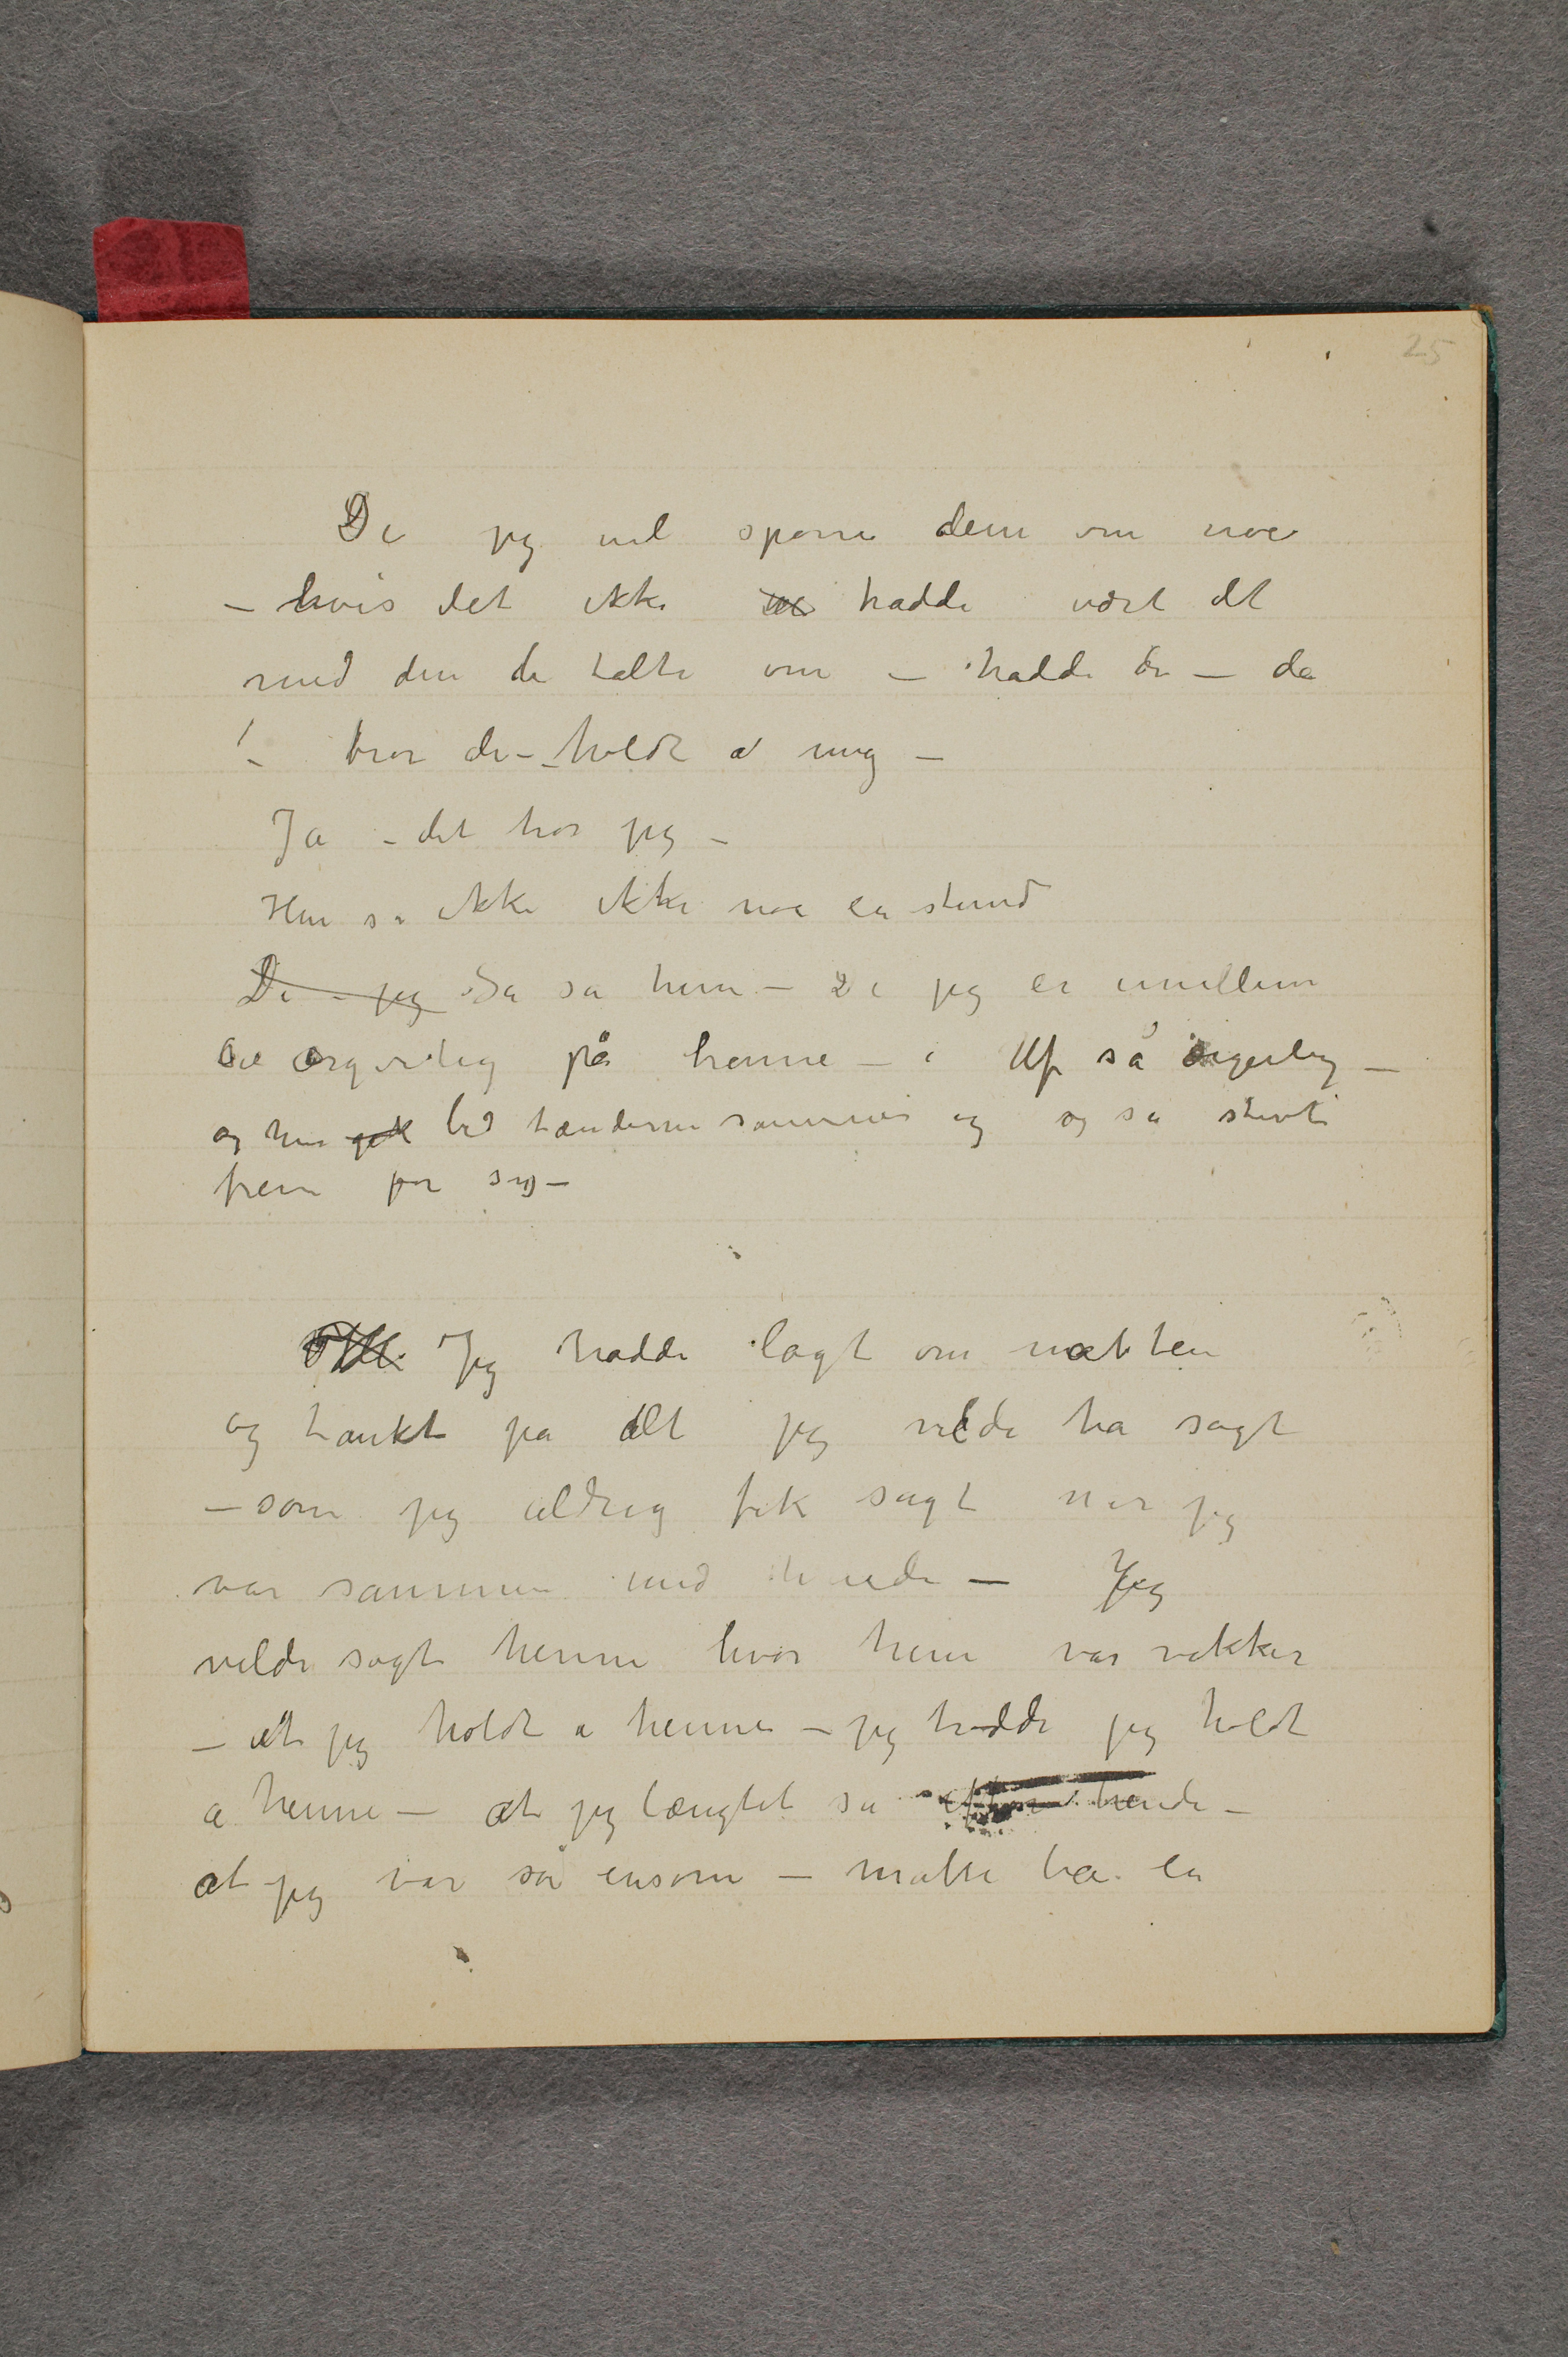 25
De jeg vil spørre dem om noe
– hvis det ikke hadde vært det
med den de talte om – hadde De – da
– tror de – holdt a mig –
Ja – det tror jeg –
Hun sa ikke ikke noe en stund
De – jeg Så sa hun – De jeg er imellem
så ærgerlig på henne – i Uf så ærgerlig –
og hun gik bed tænderne sammen og og så stivt
frem for sig –
Jeg hadde lagt om natten
og tænkt på alt jeg vilde ha sagt
– som jeg aldrig fik sagt når jeg
var sammen med hende – Jeg
vilde sagt henne hvor hun var vakker
– at jeg holdt a henne – jeg trodde jeg holdt
a henne – at jeg længtet så efter hende –
at jeg var så ensom – måtte ha en